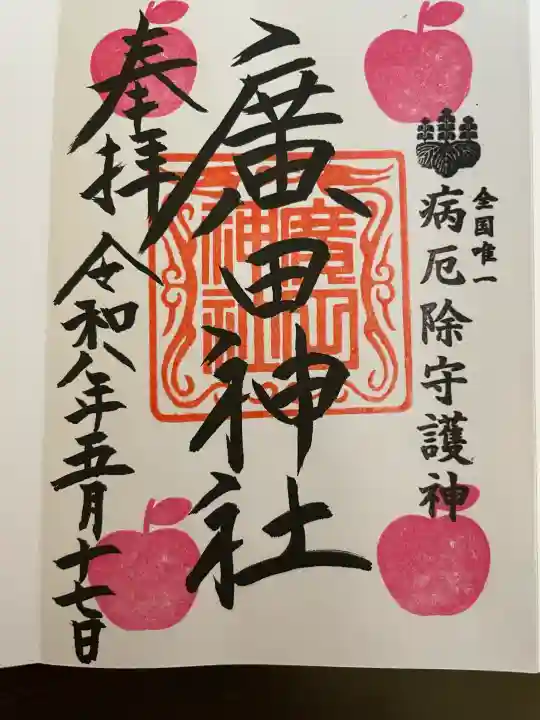 全国唯一
病厄除守護神
廣田神社
廣田神社
奉拝
令和八年五月十七日